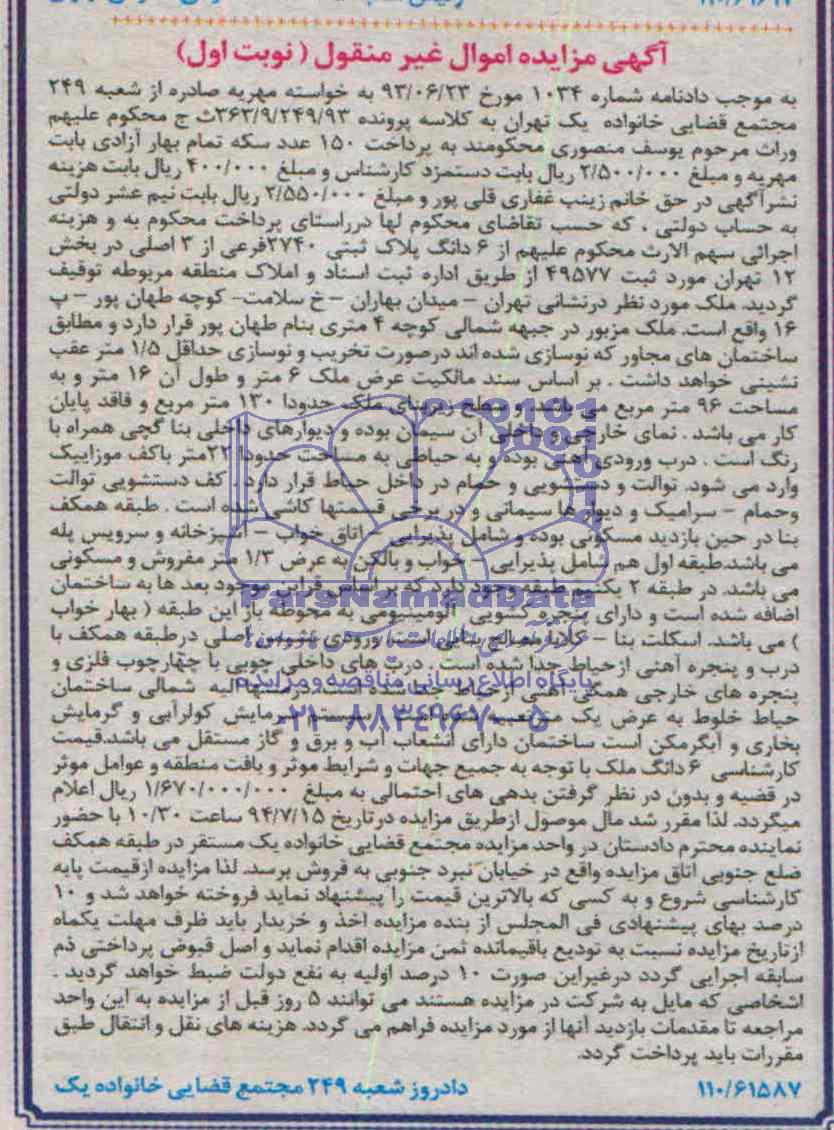 آگهی مزایده اموال غیر منقول ( نوبت اول)
به موجب دادنامه شماره ۱۰۳۴ مورخ ۹۳/۰۶/۲۳ به خواسته مهریه صادره از شعبه ۲۴۹
مجتمع قضایی خانواده یک تهران به کلاسه پرونده ۳۶۳/۹/۲۴۹/۹۳ث ج محکوم علیهم
وراث مرحوم یوسف منصوری محکومند به پرداخت ۱۵۰ عدد سکه تمام بهار آزادی بابت
مهریه و مبلغ ۲/۵۰۰/۰۰۰ ریال بابت دستمزد کارشناس و مبلغ ۴۰۰/۰۰۰ ریال بابت هزینه
نشرآگهی در حق خانم زینب غفاری قلی پور و مبلغ ۲/۵۵۰/۰۰۰ ریال بابت نیم عشر دولتی
به حساب دولتی ، که حسب تقاضای محکوم لها درراستای پرداخت محکوم به و هزینه
اجرائی سهم الارث محکوم علیهم از ۶ دانگ پلاک ثبتی ۲۷۴۰فرعی از ۳ اصلی در بخش
۱۲ تهران مورد ثبت ۴۹۵۷۷ از طریق اداره ثبت اسناد و املاک منطقه مربوطه توقیف
گردید. ملک مورد نظر درنشانی تهران – میدان بهاران – خ سلامت- کوچه طهان پور – پ
۱۶ واقع است. ملک مزبور در جبهه شمالی کوچه ۴ متری بنام طهان پور قرار دارد و مطابق
ساختمان های مجاور که نوسازی شده اند درصورت تخریب و نوسازی حداقل ۱/۵ متر عقب
نشینی خواهد داشت . بر اساس سند مالکیت عرض ملک ۶ متر و طول آن ۱۶ متر و به
مساحت ۹۶ متر مربع می باشد. و سطح زیربنای ملک حدودا ۱۳۰ متر مربع و فاقد پایان
کار می باشد . نمای خارجی و داخلی آن سیمان بوده و دیوارهای داخلی بنا گچی همراه با
رنگ است . درب ورودی آهنی بوده و به حیاطی به مساحت حدودا ۲۲متر باکف موزاییک
وارد می شود. توالت و دستشویی و حمام در داخل حیاط قرار دارد . کف دستشویی توالت
وحمام – سرامیک و دیوار ها سیمانی و در برخی قسمتها کاشی شده است . طبقه همکف
بنا در حین بازدید مسکونی بوده و شامل پذیرایی – اتاق خواب – آشپزخانه و سرویس پله
می باشد.طبقه اول هم شامل پذیرایی – خواب و بالکن به عرض ۱/۳ متر مفروش و مسکونی
می باشد. در طبقه ۲ یک نیم طبقه وجود دارد که بر اساس قراین موجود بعد ها به ساختمان
اضافه شده است و دارای پنجره کشویی آلومینیومی به محوطه باز این طبقه ( بهار خواب
) می باشد. اسکلت بنا – کلاف مصالح بنایی است. ورودی اصلی درطبقه همکف با
درب و پنجره آهنی ازحیاط جدا شده است . درب های داخلی چوبی با چهارچوب فلزی و
پنجره های خارجی همگی آهنی ازحیاط جدا شده است. درمنتهاالیه شمالی ساختمان
حیاط خلوط به عرض یک متر سیستم سرمایش کولرآبی و گرمایش
بخاری و آبگرمکن است ساختمان دارای انشعاب آب و برق و گاز مستقل می باشد.قیمت
کارشناسی ۶ دانگ ملک با توجه به جمیع جهات و شرایط موثر و بافت منطقه و عوامل موثر
در قضیه و بدون در نظر گرفتن بدهی های احتمالی به مبلغ ۱/۶۷۰/۰۰۰/۰۰۰ ریال اعلام
میگردد. لذا مقرر شد مال موصول ازطریق مزایده درتاریخ ۹۴/۷/۱۵ ساعت ۱۰/۳۰ با حضور
نماینده محترم دادستان در واحد مزایده مجتمع قضایی خانواده یک مستقر در طبقه همکف
ضلع جنوبی اتاق مزایده واقع در خیابان نبرد جنوبی به فروش برسد. لذا مزایده ازقیمت پایه
کارشناسی شروع و به کسی که بالاترین قیمت را پیشنهاد نماید فروخته خواهد شد و ۱۰
درصد بهای پیشنهادی فی المجلس از بنده مزایده اخذ و خریدار باید ظرف مهلت یکماه
ازتاریخ مزایده نسبت به تودیع باقیمانده ثمن مزایده اقدام نماید و اصل قبوض پرداختی ذم
سابقه اجرایی گردد درغیراین صورت ۱۰ درصد اولیه به نفع دولت ضبط خواهد گردید .
اشخاصی که مایل به شرکت در مزایده هستند می توانند ۵ روز قبل از مزایده به این واحد
مراجعه تا مقدمات بازدید آنها از مورد مزایده فراهم می گردد. هزینه های نقل و انتقال طبق
مقررات باید پرداخت گردد.
۱۱۰/۶۱۵۸۷ دادروز شعبه ۲۴۹ مجتمع قضایی خانواده یک
ParsNamadData
پایگاه اطلاع رسانی مناقصه و مزایده
۰۲۱-۸۸۳۴۹۶۷۰-۵